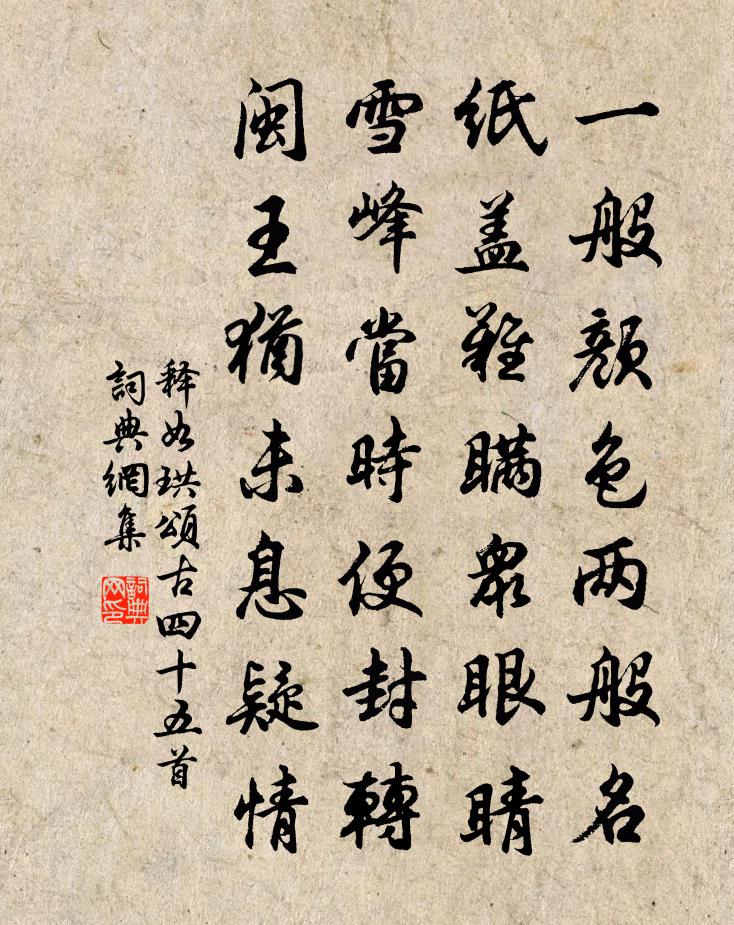 一般颜色两般名
紙盖難瞞衆眼睛
雪峰當時便封轉
闽王猶未息疑情
释如珙頌古四十五首
詞典網集
詞典網印